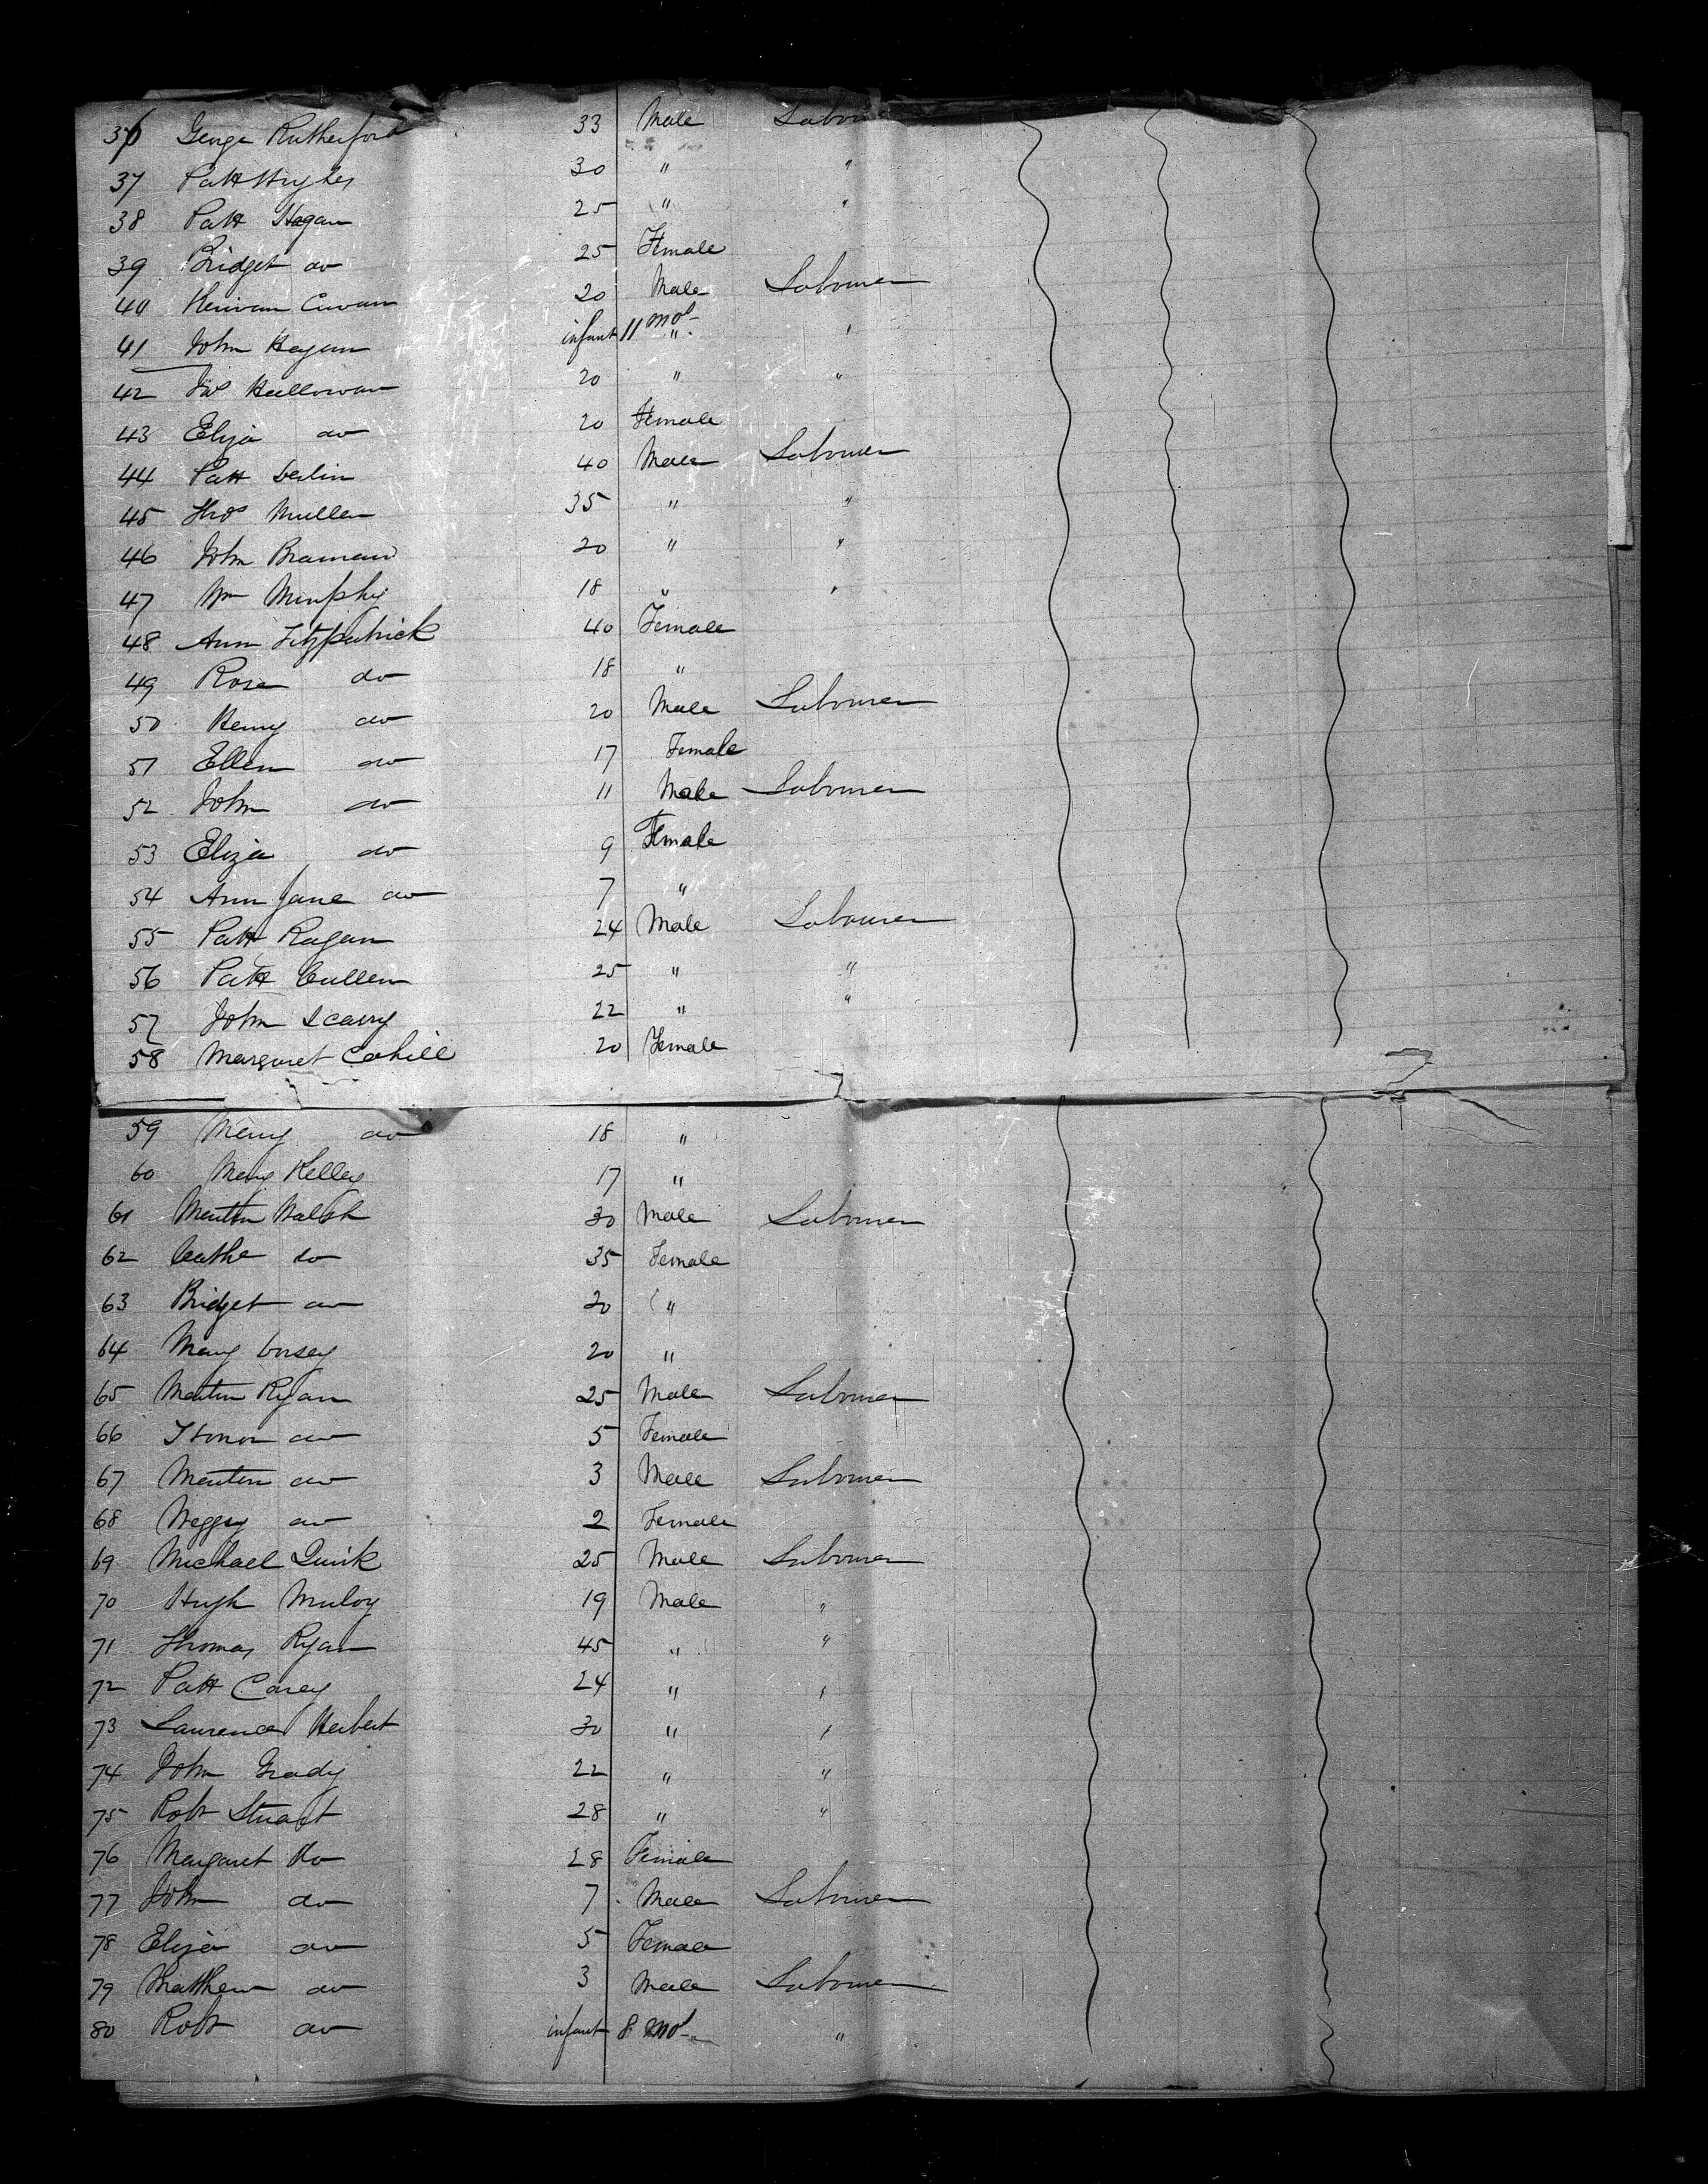 36 George Rutherford 33 Male Labou
37 Patt Hughes 30 " "
38 Patt Hagan 25 " "
39 Bridget do 25 Female
40 20 Male Labourer
41 John Hagan infant 11 mos " "
42 Jas Hallowan 20 " "
43 Eliza do 20 Female
44 Patt Devlin 40 Male Labourer
45 Thos Mullen 35 " "
46 John 20 " "
47 Wm Murphy 18 " "
48 Ann Fitzpatrick 40 Female
49 Rose do 18 "
50 Henry do 20 Male Labourer
51 Ellen do 17 Female
52 John do 11 Male Labourer
53 Eliza do 9 Female
54 Ann Jane do 7 "
55 Patt Ragan 24 Male Labourer
56 Patt Cullen 25 " "
57 John Scarry 22 " "
58 Margaret Cahill 20 Female
59 Mary do 18 "
60 Mary Kelley 17 "
61 Martin Walsh 30 Male Labourer
62 Cathe do 35 Female
63 Bridget do 20 "
64 Mary 20 "
65 Martin Ryan 25 Male Labourer
66 Honor do 5 Female
67 Martin do 3 Male Labourer
68 do 2 Female
69 Michael Quirk 25 Male Labourer
70 Hugh Muloy 19 Male "
71 Thomas Ryan 45 " "
72 Patt Carey 24 " "
73 Laurence Herbert 30 " "
74 John Grady 22 " "
75 Robt Stuart 28 " "
76 Margaret Do 28 Female
77 John do 7 Male Labourer
78 Eliza do 5 Female
79 Matthew do 3 Male Labourer
80 Robt do infant 8 mos "